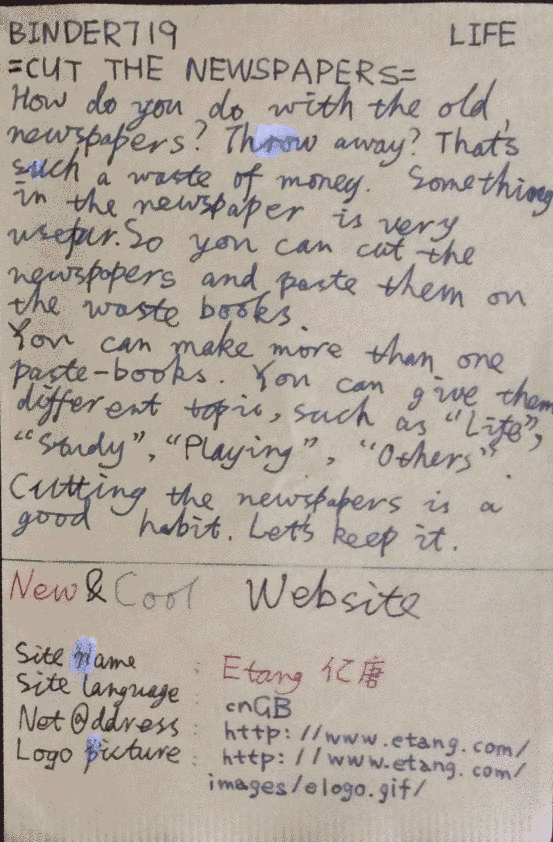 BINDER719 LIFE
=CUT THE NEWSPAPERS=
How do you do with the old
newspapers? Throw away? That's
such a waste of money. Something
in the newspaper is very
usefur. So you can cut the
newspopers and paste them on
the waste books.
You can make more than one
paste-books. You can give them
different topic, such as "Life",
"Study", "Playing", "Others".
Cutting the newspapers is a
good habit. Let's keep it.
New & Cool Website
Site Name : Etang 亿唐
Site language : cnGB
Net @ddress : http://www.etang.com/
Logo picture : http://www.etang.com/
images/elogo.gif/